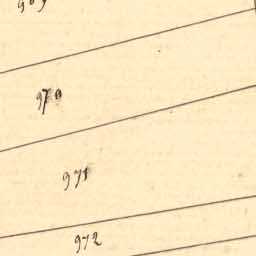 970
971
972